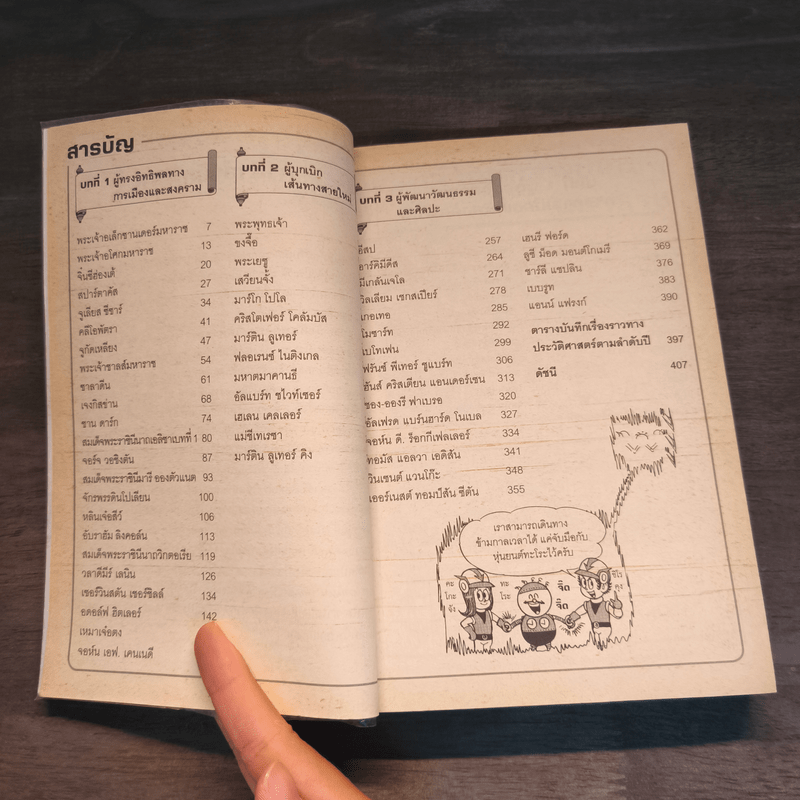 สารบัญ
บทที่ 1 ผู้ทรงอิทธิพลทาง
การเมืองและสงคราม
พระเจ้าอเล็กซานเดอร์มหาราช 7
พระเจ้าอโศกมหาราช 13
จิ๋นซีฮ่องเต้ 20
สปาร์ตาคัส 27
จูเลียส ซีซาร์ 34
คลีโอพัตรา 41
จูกัดเหลียง 47
พระเจ้าชาลส์มหาราช 54
ซาลาดีน 61
เจงกิสข่าน 68
ชาน ดาร์ก 74
สมเด็จพระราชินีนาถเอลิซาเบทที่ 1 80
จอร์จ วอชิงตัน 87
สมเด็จพระราชินีมารี อองตัวแนต 93
จักรพรรดินโปเลียน 100
หลินเจ๋อสวี 106
อับราฮัม ลิงคอล์น 113
สมเด็จพระราชินีนาถวิกตอเรีย 119
วลาดีมีร์ เลนิน 126
เซอร์วินสตัน เชอร์ชิลล์ 134
อดอล์ฟ ฮิตเลอร์ 142
เหมาเจ๋อตง
จอห์น เอฟ. เคนเนดี
บทที่ 2 ผู้บุกเบิก
เส้นทางสายใหม่
พระพุทธเจ้า
ขงจื๊อ
พระเยซู
เสวียนจั้ง
มาร์โก โปโล
คริสโตเฟอร์ โคลัมบัส
มาร์ติน ลูเทอร์
ฟลอเรนซ์ ไนติงเกล
มหาตมาคานธี
อัลแบร์ท ชไวท์เซอร์
เฮเลน เคลเลอร์
แม่ชีเทเรซา
มาร์ติน ลูเทอร์ คิง
บทที่ 3 ผู้พัฒนาวัฒนธรรม
และศิลปะ
อีสป 257
อาร์คิมีดีส 264
มีเกลันเจโล 271
วิลเลียม เชกสเปียร์ 278
เกอเทอ 285
โมซาร์ท 292
เบโทเฟน 299
ฟรันซ์ พีเทอร์ ชูแบร์ท 306
ฮันส์ คริสเตียน แอนเดอร์เซน 313
ชอง-อองรี ฟาเบรอ 320
อัลเฟรด แบร์นฮาร์ด โนเบล 327
จอห์น ดี. ร็อกกีเฟลเลอร์ 334
ทอมัส แอลวา เอดิสัน 341
วินเซนต์ แวนโก๊ะ 348
เออร์เนสต์ ทอมป์สัน ซีตัน 355
เฮนรี ฟอร์ด 362
ลูซี ม็อด มอนต์โกเมรี 369
ชาร์ลี แชปลิน 376
เบบรูท 383
แอนน์ แฟรงก์ 390
ตารางบันทึกเรื่องราวทาง
ประวัติศาสตร์ตามลำดับปี 397
ดัชนี 407
เราสามารถเดินทาง
ข้ามกาลเวลาได้ แค่จับมือกับ
หุ่นยนต์ทะโระไว้ครับ
คะ
โกะ
จัง
ทะ
โระ
จี๊ด
จี๊ด
ฮิโร
คุง